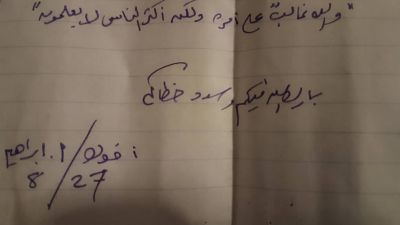 "والله غالبٌ على أمره ولكن أكثر الناس لا يعلمون"
بارك الله فيكم وسدد خطاكم
أخوكم / أ. ابراهيم
8 / 27